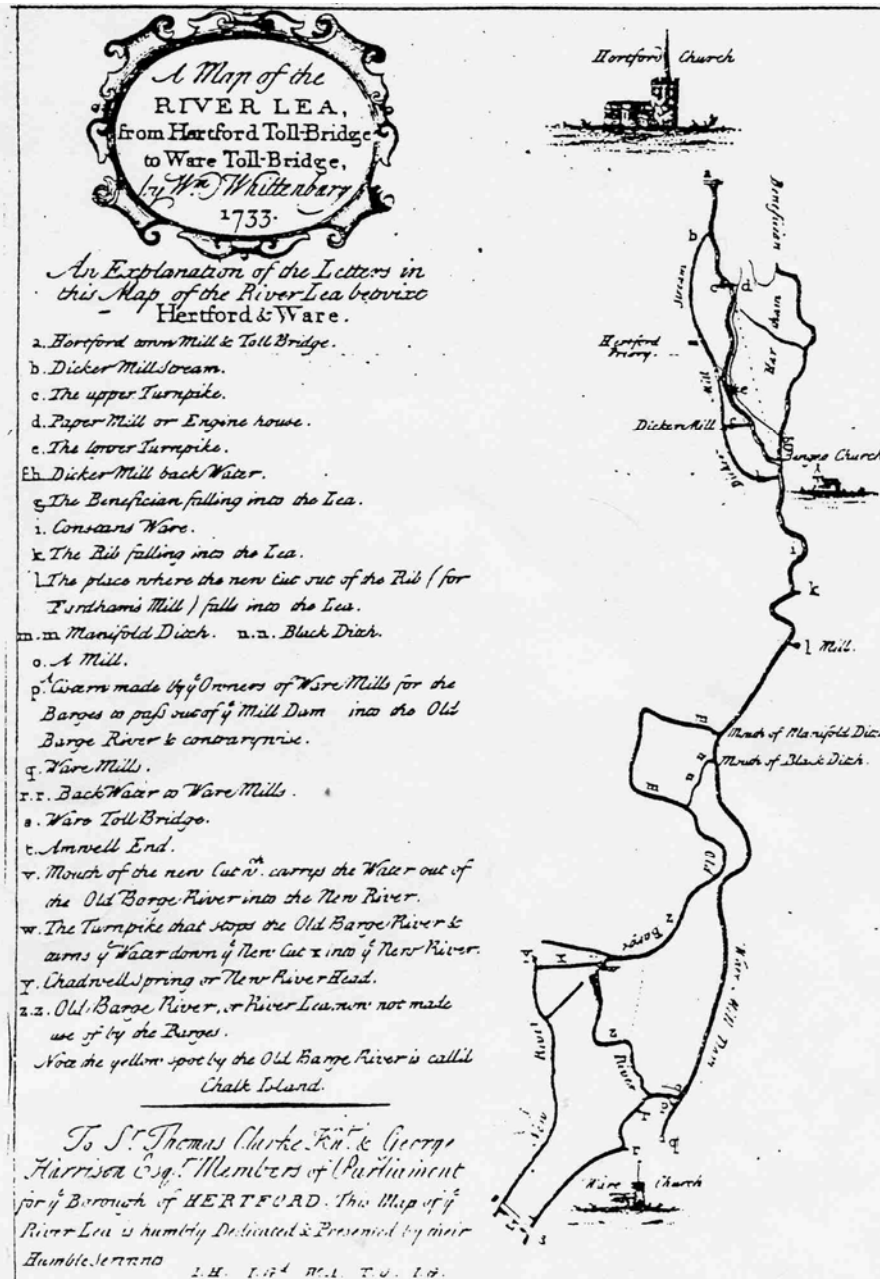 A Map of the
RIVER LEA,
from Hertford Toll-Bridge
to Ware Toll-Bridge,
by Wm Whittenbury
1733.
An Explanation of the Letters in
this Map of the River Lea betwixt
Hertford & Ware.
a. Hertford town Mill & Toll Bridge.
b. Dicker Mill stream.
c. The upper Turnpike.
d. Paper Mill or Engine house.
e. The lower Turnpike.
f.h. Dicker Mill back Water.
g. The Benefician falling into the Lea.
i. Constans Ware.
k. The Rib falling into the Lea.
l. The place where the new Cut out of the Rib (for
Mill) falls into the Lea.
m.m Manifold Ditch. n.n. Black Ditch.
o. A Mill.
p. A Cistern made by ye Owners of Ware Mills for the
Barges to pass out of ye Mill Dam into the Old
Barge River & contrarywise.
q. Ware Mills.
r.r. Back Water to Ware Mills.
s. Ware Toll Bridge.
t. Amwell End.
v. Mouth of the new Cut wch. carrys the Water out of
the Old Barge River into the New River.
w. The Turnpike that stops the Old Barge River &
turns ye Water down ye New Cut x into ye New River.
y. Chadwell spring or New River Head.
z.z. Old Barge River, or River Lea, now not made
use of by the Barges.
Note the yellow spot by the Old Barge River is call'd
Chalk Island.
To Sr. Thomas Clarke Knt. & George
Harrison Esqr. Members of Parliament
for ye Borough of HERTFORD. This Map of ye
River Lea is humbly Dedicated & Presented by their
Humble servants
Hertford Church
a
b
Benefician
Stream
c d
Hartham
Hertford
Priory
Mill
e
Dicker Mill f
Dicker
g
Bengeo Church
h
i
k
l Mill.
m
Mouth of Manifold Ditch
n n
Mouth of Black Ditch.
m
Old
z
Barge
Ware Mill Dam
x
River
z
River
New
o
p
r q
r
Ware Church
t
s